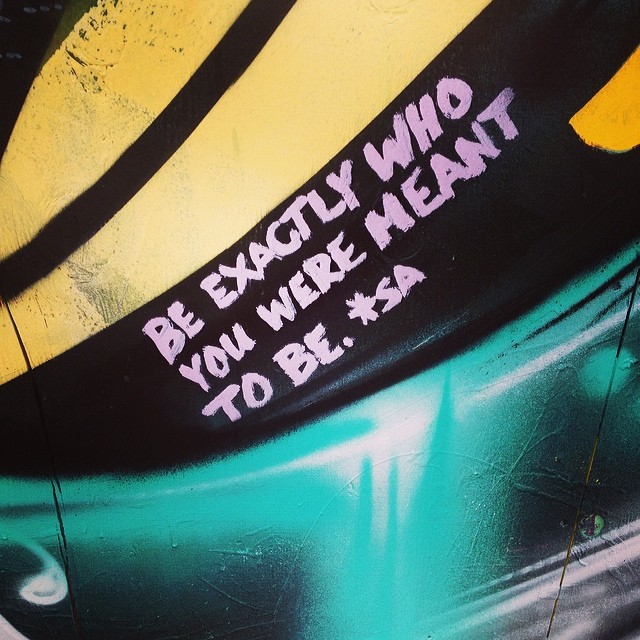 BE EXACTLY WHO
YOU WERE MEANT
TO BE. *SA